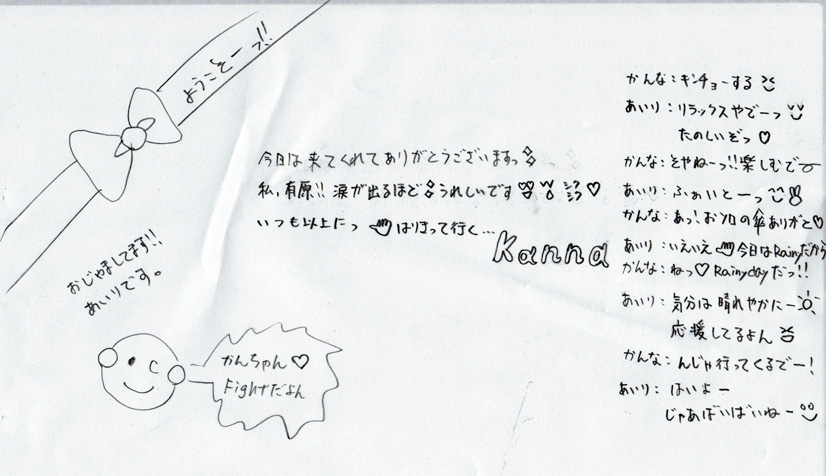 ようこそーっ!!
今日は来てくれてありがとうございますっ
私,有原!! 涙が出るほどうれしいです♡
いつも以上にっ はりきって行く…
Kanna
おじゃましてます!!
あいりです。
かんちゃん♡
Fightだよん
かんな:キンチョーする
あいり:リラックスやでーっ
たのしいぞっ♡
かんな:そやねーっ!!楽しむでー
あいり:ふぁいとーっ
かんな:あっ!おソロの傘ありがと♡
あいり:いえいえ 今日はRainyだから
かんな:ねっ♡ Rainydayだっ!!
あいり:気分は晴れやかにー
応援してるよん
かんな:んじゃ行ってくるでー!
あいり:はいよー
じゃあばいばいねー